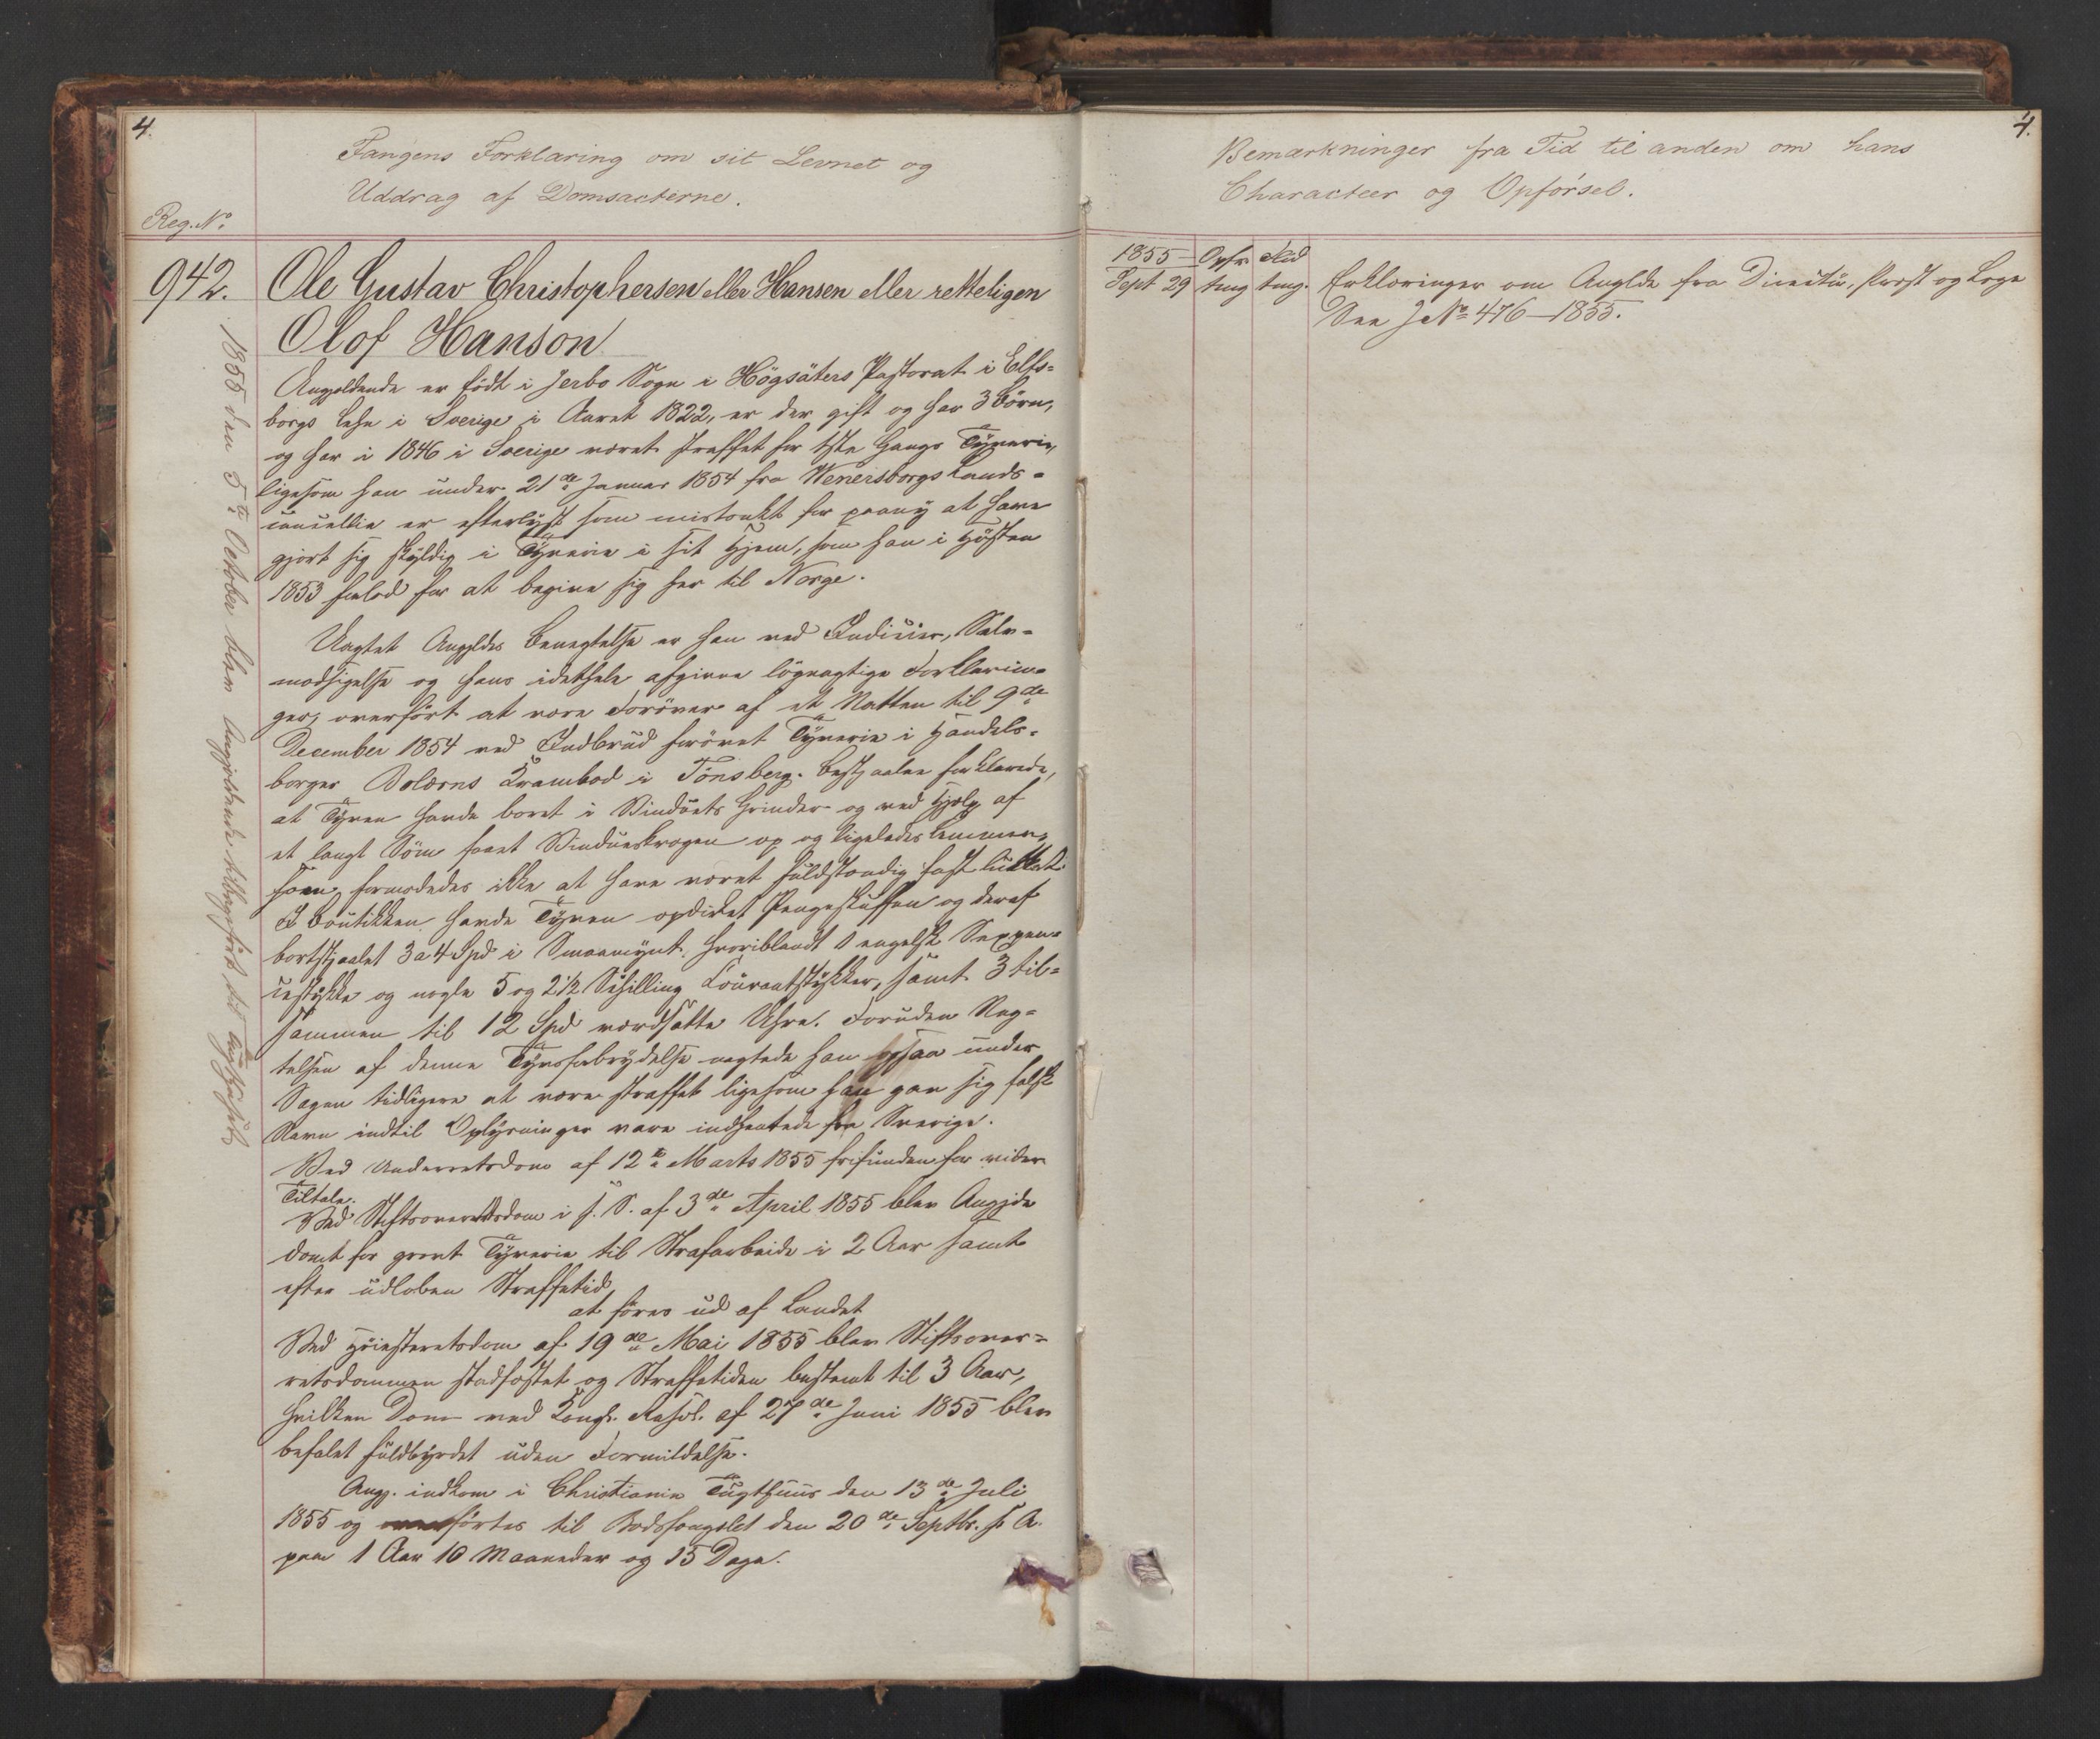 4.
Fangens Forklaring om sit Levnet og
Uddrag af Domsacterne.
Reg. No.
942. Ole Gustav Christophersen eller Hansen eller retteligen
Olof Hanson
Angjeldende er født i Jerbo Sogn i Högsäters Pastorat i Elfs-
borgs Lehn i Sverige i Aaret 1822, er der gift og har 3 Børn,
og har i 1846 i Sverige været straffet for 1ste Gangs Tyverie,
ligesom han under 21de Januar 1854 fra Wenersborgs Lands-
cancellie er efterlyst som mistænkt for paany at have
gjort sig skyldig i Tyverie i sit Hjem, som han i Høsten
1853 forlod for at begive sig her til Norge.
Uagtet Angjeldes Benegtelse er han ved Indicier, Selv-
modsigelse og hans idethele afgivne løgnagtige Forklarin-
ger, overført at være Forøver af et Natten til 9de
December 1854 ved Indbrud forøvet Tyverie i Handels-
borger Bolærns Krambod i Tønsberg. Bestjaalne forklarede,
at Tyven havde boret i Vinduets Grinder og ved Hjelp af
et langt Søm faaet Vindueskrogen op og ligeledes Lemmen,
som formodedes ikke at have været fuldstændig fast lukket.
I Boutikken havde Tyven opdirket Pengeskuffen og deraf
bortstjaalet 3 a 4 Spd i Smaamynt, hvoriblandt 1 engelsk Sexpen-
cestykke og nogle 5 og 2 1/2 Schilling Courantstykker, samt 3 til-
sammen til 12 Spd værdsatte Uhre. Foruden Neg-
telsen af denne Tyvsforbrydelse negtede han ogsaa under
Sagen tidligere at være straffet ligesom han gav sig falsk
Navn indtil Oplysninger vare indhentede fra Sverige.
Ved Underretsdom af 12te Marts 1855 frifunden for videre
Tiltale.
Ved Stiftsoverretsdom i s. S. af 3de April 1855 blev Angjde
dømt for grovt Tyverie til Strafarbeide i 2 Aar samt
efter udløben Straffetid
at føres ud af Landet
Ved Høiesteretsdom af 19de Mai 1855 blev Stiftsover-
retsdommen stadfæstet og Straffetiden bestemt til 3 Aar,
hvilken Dom ved Kongl. Resol. af 27de Juni 1855 blev
befalet fuldbyrdet uden Formildelse.
Angj. indkom i Christiania Tugthuus den 13de Juli
1855 og førtes til Bodsfængslet den 20de Septbr. s. A.
paa 1 Aar 10 Maaneder og 15 Dage.
1855 den 5te October blev Angjeldende tilbageført til Tugthuset
4.
Bemærkninger fra Tid til anden om hans
Characteer og Opførsel.
1855 Opfr Flid
Sept 29 tmg tmg. Erklæringer om Angjlde fra Directör, Præst og Læge
See J No 476-1855.